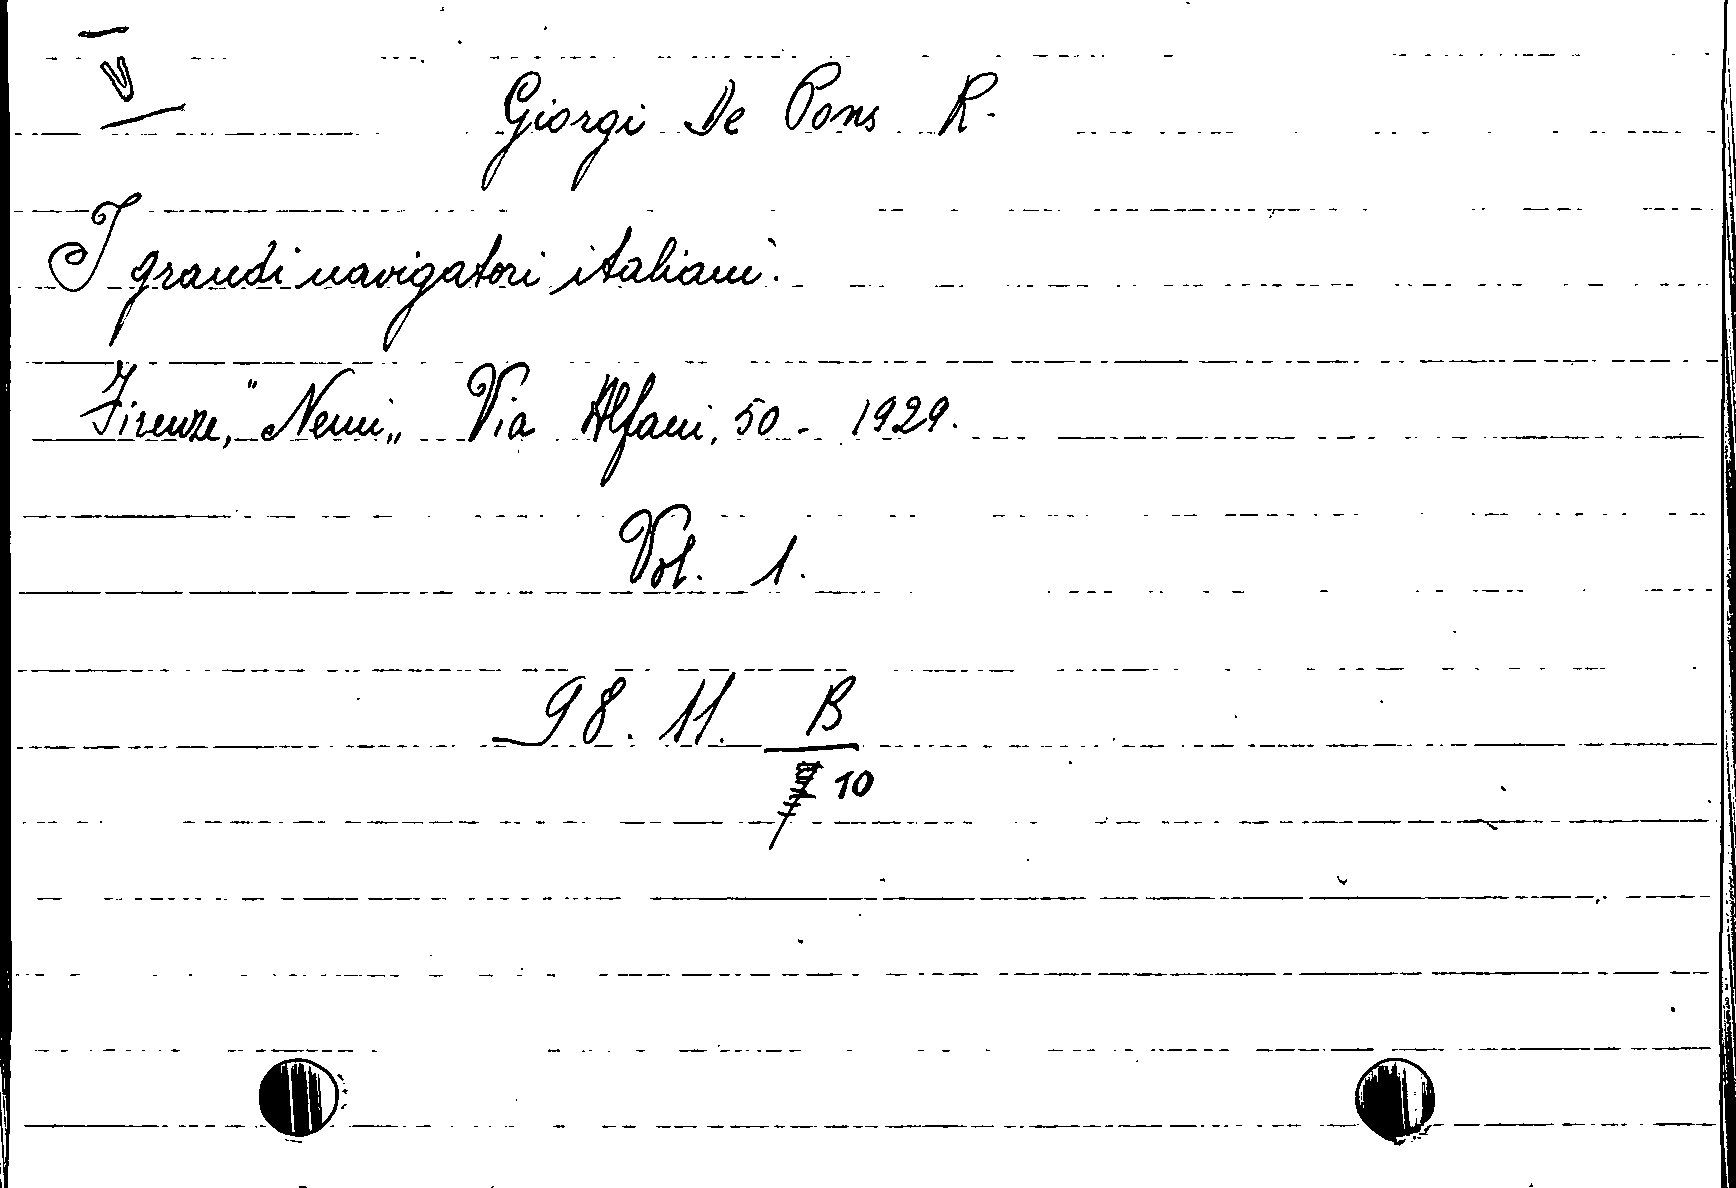 V
Giorgi De Pons R.
I grandi navigatori italiani.
Firenze, "Nemi„ Via Alfani, 50 - 1929.
Vol. 1.
98. 11. B
10